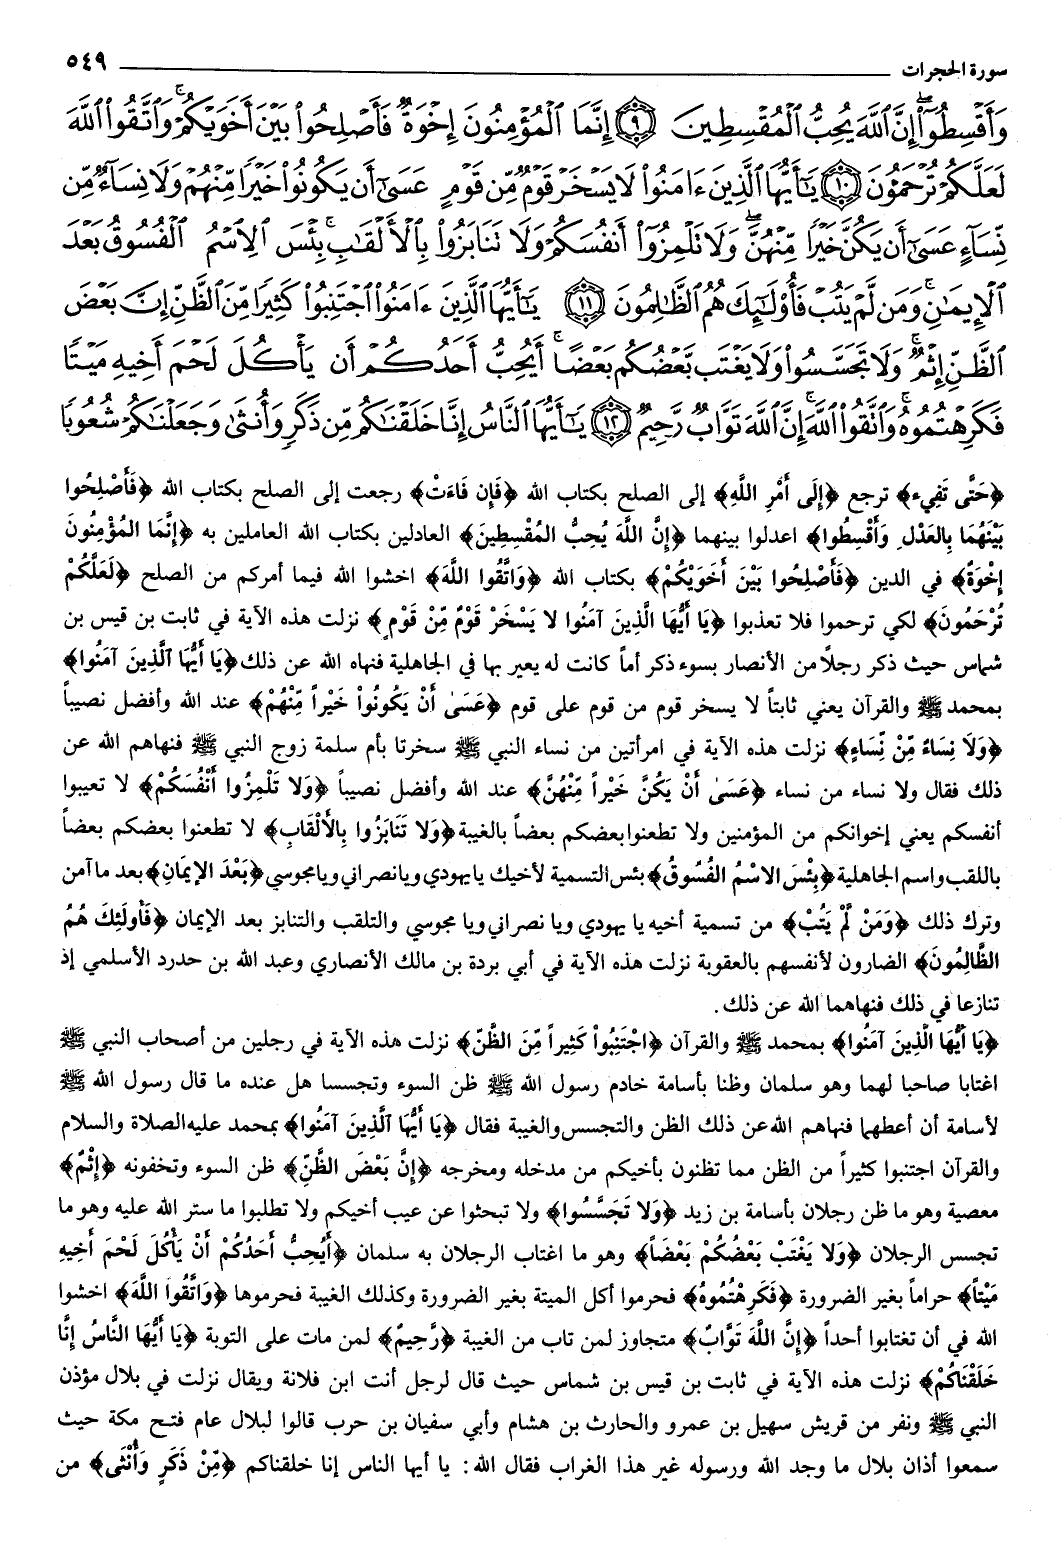 سورة الحجرات ٥٤٩
وَأَقْسِطُوٓا۟ ۖ إِنَّ ٱللَّهَ يُحِبُّ ٱلْمُقْسِطِينَ ٩ إِنَّمَا ٱلْمُؤْمِنُونَ إِخْوَةٌ فَأَصْلِحُوا۟ بَيْنَ أَخَوَيْكُمْ ۚ وَٱتَّقُوا۟ ٱللَّهَ
لَعَلَّكُمْ تُرْحَمُونَ ١٠ يَٰٓأَيُّهَا ٱلَّذِينَ ءَامَنُوا۟ لَا يَسْخَرْ قَوْمٌ مِّن قَوْمٍ عَسَىٰٓ أَن يَكُونُوا۟ خَيْرًا مِّنْهُمْ وَلَا نِسَآءٌ مِّن
نِّسَآءٍ عَسَىٰٓ أَن يَكُنَّ خَيْرًا مِّنْهُنَّ ۖ وَلَا تَلْمِزُوٓا۟ أَنفُسَكُمْ وَلَا تَنَابَزُوا۟ بِٱلْأَلْقَٰبِ ۚ بِئْسَ ٱلِٱسْمُ ٱلْفُسُوقُ بَعْدَ
ٱلْإِيمَٰنِ ۚ وَمَن لَّمْ يَتُبْ فَأُو۟لَٰٓئِكَ هُمُ ٱلظَّالِمُونَ ١١ يَٰٓأَيُّهَا ٱلَّذِينَ ءَامَنُوا۟ ٱجْتَنِبُوا۟ كَثِيرًا مِّنَ ٱلظَّنِّ إِنَّ بَعْضَ
ٱلظَّنِّ إِثْمٌ ۖ وَلَا تَجَسَّسُوا۟ وَلَا يَغْتَب بَّعْضُكُم بَعْضًا ۚ أَيُحِبُّ أَحَدُكُمْ أَن يَأْكُلَ لَحْمَ أَخِيهِ مَيْتًا
فَكَرِهْتُمُوهُ ۚ وَٱتَّقُوا۟ ٱللَّهَ ۚ إِنَّ ٱللَّهَ تَوَّابٌ رَّحِيمٌ ١٢ يَٰٓأَيُّهَا ٱلنَّاسُ إِنَّا خَلَقْنَٰكُم مِّن ذَكَرٍ وَأُنثَىٰ وَجَعَلْنَٰكُمْ شُعُوبًا
﴿حَتَّى تَفِيء﴾ ترجع ﴿إِلَى أَمْرِ اللَّهِ﴾ إلى الصلح بكتاب الله ﴿فَإِن فَاءَتْ﴾ رجعت إلى الصلح بكتاب الله ﴿فَأَصْلِحُوا
بَيْنَهُمَا بِالعَدْلِ وَأَقْسِطُوا﴾ اعدلوا بينهما ﴿إِنَّ اللَّهَ يُحِبُّ المُقْسِطِينَ﴾ العادلين بكتاب الله العاملين به ﴿إِنَّمَا المُؤْمِنُونَ
إِخْوَةٌ﴾ في الدين ﴿فَأَصْلِحُوا بَيْنَ أَخَوَيْكُمْ﴾ بكتاب الله ﴿وَاتَّقُوا اللَّهَ﴾ اخشوا الله فيما أمركم من الصلح ﴿لَعَلَّكُمْ
تُرْحَمُونَ﴾ لكي ترحموا فلا تعذبوا ﴿يَا أَيُّهَا الَّذِينَ آمَنُوا لا يَسْخَرْ قَوْمٌ مِّنْ قَوْمٍ﴾ نزلت هذه الآية في ثابت بن قيس بن
شماس حيث ذكر رجلاً من الأنصار بسوء ذكر أماً كانت له يعير بها في الجاهلية فنهاه الله عن ذلك ﴿يَا أَيُّهَا الَّذِينَ آمَنُوا﴾
بمحمد ﷺ والقرآن يعني ثابتاً لا يسخر قوم من قوم على قوم ﴿عَسَىٰ أَنْ يَكُونُوا خَيْراً مِّنْهُمْ﴾ عند الله وأفضل نصيباً
﴿وَلَا نِسَاءٌ مِّنْ نِّسَاءٍ﴾ نزلت هذه الآية في امرأتين من نساء النبي ﷺ سخرتا بأم سلمة زوج النبي ﷺ فنهاهم الله عن
ذلك فقال ولا نساء من نساء ﴿عَسَىٰ أَنْ يَكُنَّ خَيْراً مِّنْهُنَّ﴾ عند الله وأفضل نصيباً ﴿وَلا تَلْمِزُوا أَنْفُسَكُمْ﴾ لا تعيبوا
أنفسكم يعني إخوانكم من المؤمنين ولا تطعنوا بعضكم بعضاً بالغيبة ﴿وَلا تَنَابَزُوا بِالأَلْقَابِ﴾ لا تطعنوا بعضكم بعضاً
باللقب واسم الجاهلية ﴿بِئْسَ الاسْمُ الفُسُوقُ﴾ بئس التسمية لأخيك يا يهودي ويا نصراني ويا مجوسي ﴿بَعْدَ الإيمَانِ﴾ بعد ما آمن
وترك ذلك ﴿وَمَنْ لَّمْ يَتُبْ﴾ من تسمية أخيه يا يهودي ويا نصراني ويا مجوسي والتلقب والتنابز بعد الإيمان ﴿فَأُولَئِكَ هُمُ
الظَّالِمُونَ﴾ الضارون لأنفسهم بالعقوبة نزلت هذه الآية في أبي بردة بن مالك الأنصاري وعبد الله بن حدرد الأسلمي إذ
تنازعا في ذلك فنهاهما الله عن ذلك.
﴿يَا أَيُّهَا الَّذِينَ آمَنُوا﴾ بمحمد ﷺ والقرآن ﴿اجْتَنِبُوا كَثِيراً مِّنَ الظَّنِّ﴾ نزلت هذه الآية في رجلين من أصحاب النبي ﷺ
اغتابا صاحبا لهما وهو سلمان وظنا بأسامة خادم رسول الله ﷺ ظن السوء وتجسسا هل عنده ما قال رسول الله ﷺ
لأسامة أن أعطهما فنهاهم الله عن ذلك الظن والتجسس والغيبة فقال ﴿يَا أَيُّهَا الَّذِينَ آمَنُوا﴾ بمحمد عليه الصلاة والسلام
والقرآن اجتنبوا كثيراً من الظن مما تظنون بأخيكم من مدخله ومخرجه ﴿إِنَّ بَعْضَ الظَّنِّ﴾ ظن السوء وتخفونه ﴿إِثْمٌ﴾
معصية وهو ما ظن رجلان بأسامة بن زيد ﴿وَلا تَجَسَّسُوا﴾ ولا تبحثوا عن عيب أخيكم ولا تطلبوا ما ستر الله عليه وهو ما
تجسس الرجلان ﴿وَلا يَغْتَبْ بَعْضُكُمْ بَعْضَاً﴾ وهو ما اغتاب الرجلان به سلمان ﴿أَيُحِبُّ أَحَدُكُمْ أَنْ يَأْكُلَ لَحْمَ أَخِيهِ
مَيْتاً﴾ حراماً بغير الضرورة ﴿فَكَرِهْتُمُوهُ﴾ فحرموا أكل الميتة بغير الضرورة وكذلك الغيبة فحرموها ﴿وَاتَّقُوا اللَّهَ﴾ اخشوا
الله في أن تغتابوا أحداً ﴿إِنَّ اللَّهَ تَوَّابٌ﴾ متجاوز لمن تاب من الغيبة ﴿رَّحِيمٌ﴾ لمن مات على التوبة ﴿يَا أَيُّهَا النَّاسُ إِنَّا
خَلَقْنَاكُمْ﴾ نزلت هذه الآية في ثابت بن قيس بن شماس حيث قال لرجل أنت ابن فلانة ويقال نزلت في بلال مؤذن
النبي ﷺ ونفر من قريش سهيل بن عمرو والحارث بن هشام وأبي سفيان بن حرب قالوا لبلال عام فتح مكة حيث
سمعوا أذان بلال ما وجد الله ورسوله غير هذا الغراب فقال الله: يا أيها الناس إنا خلقناكم ﴿مِّنْ ذَكَرٍ وَأُنْثَى﴾ من